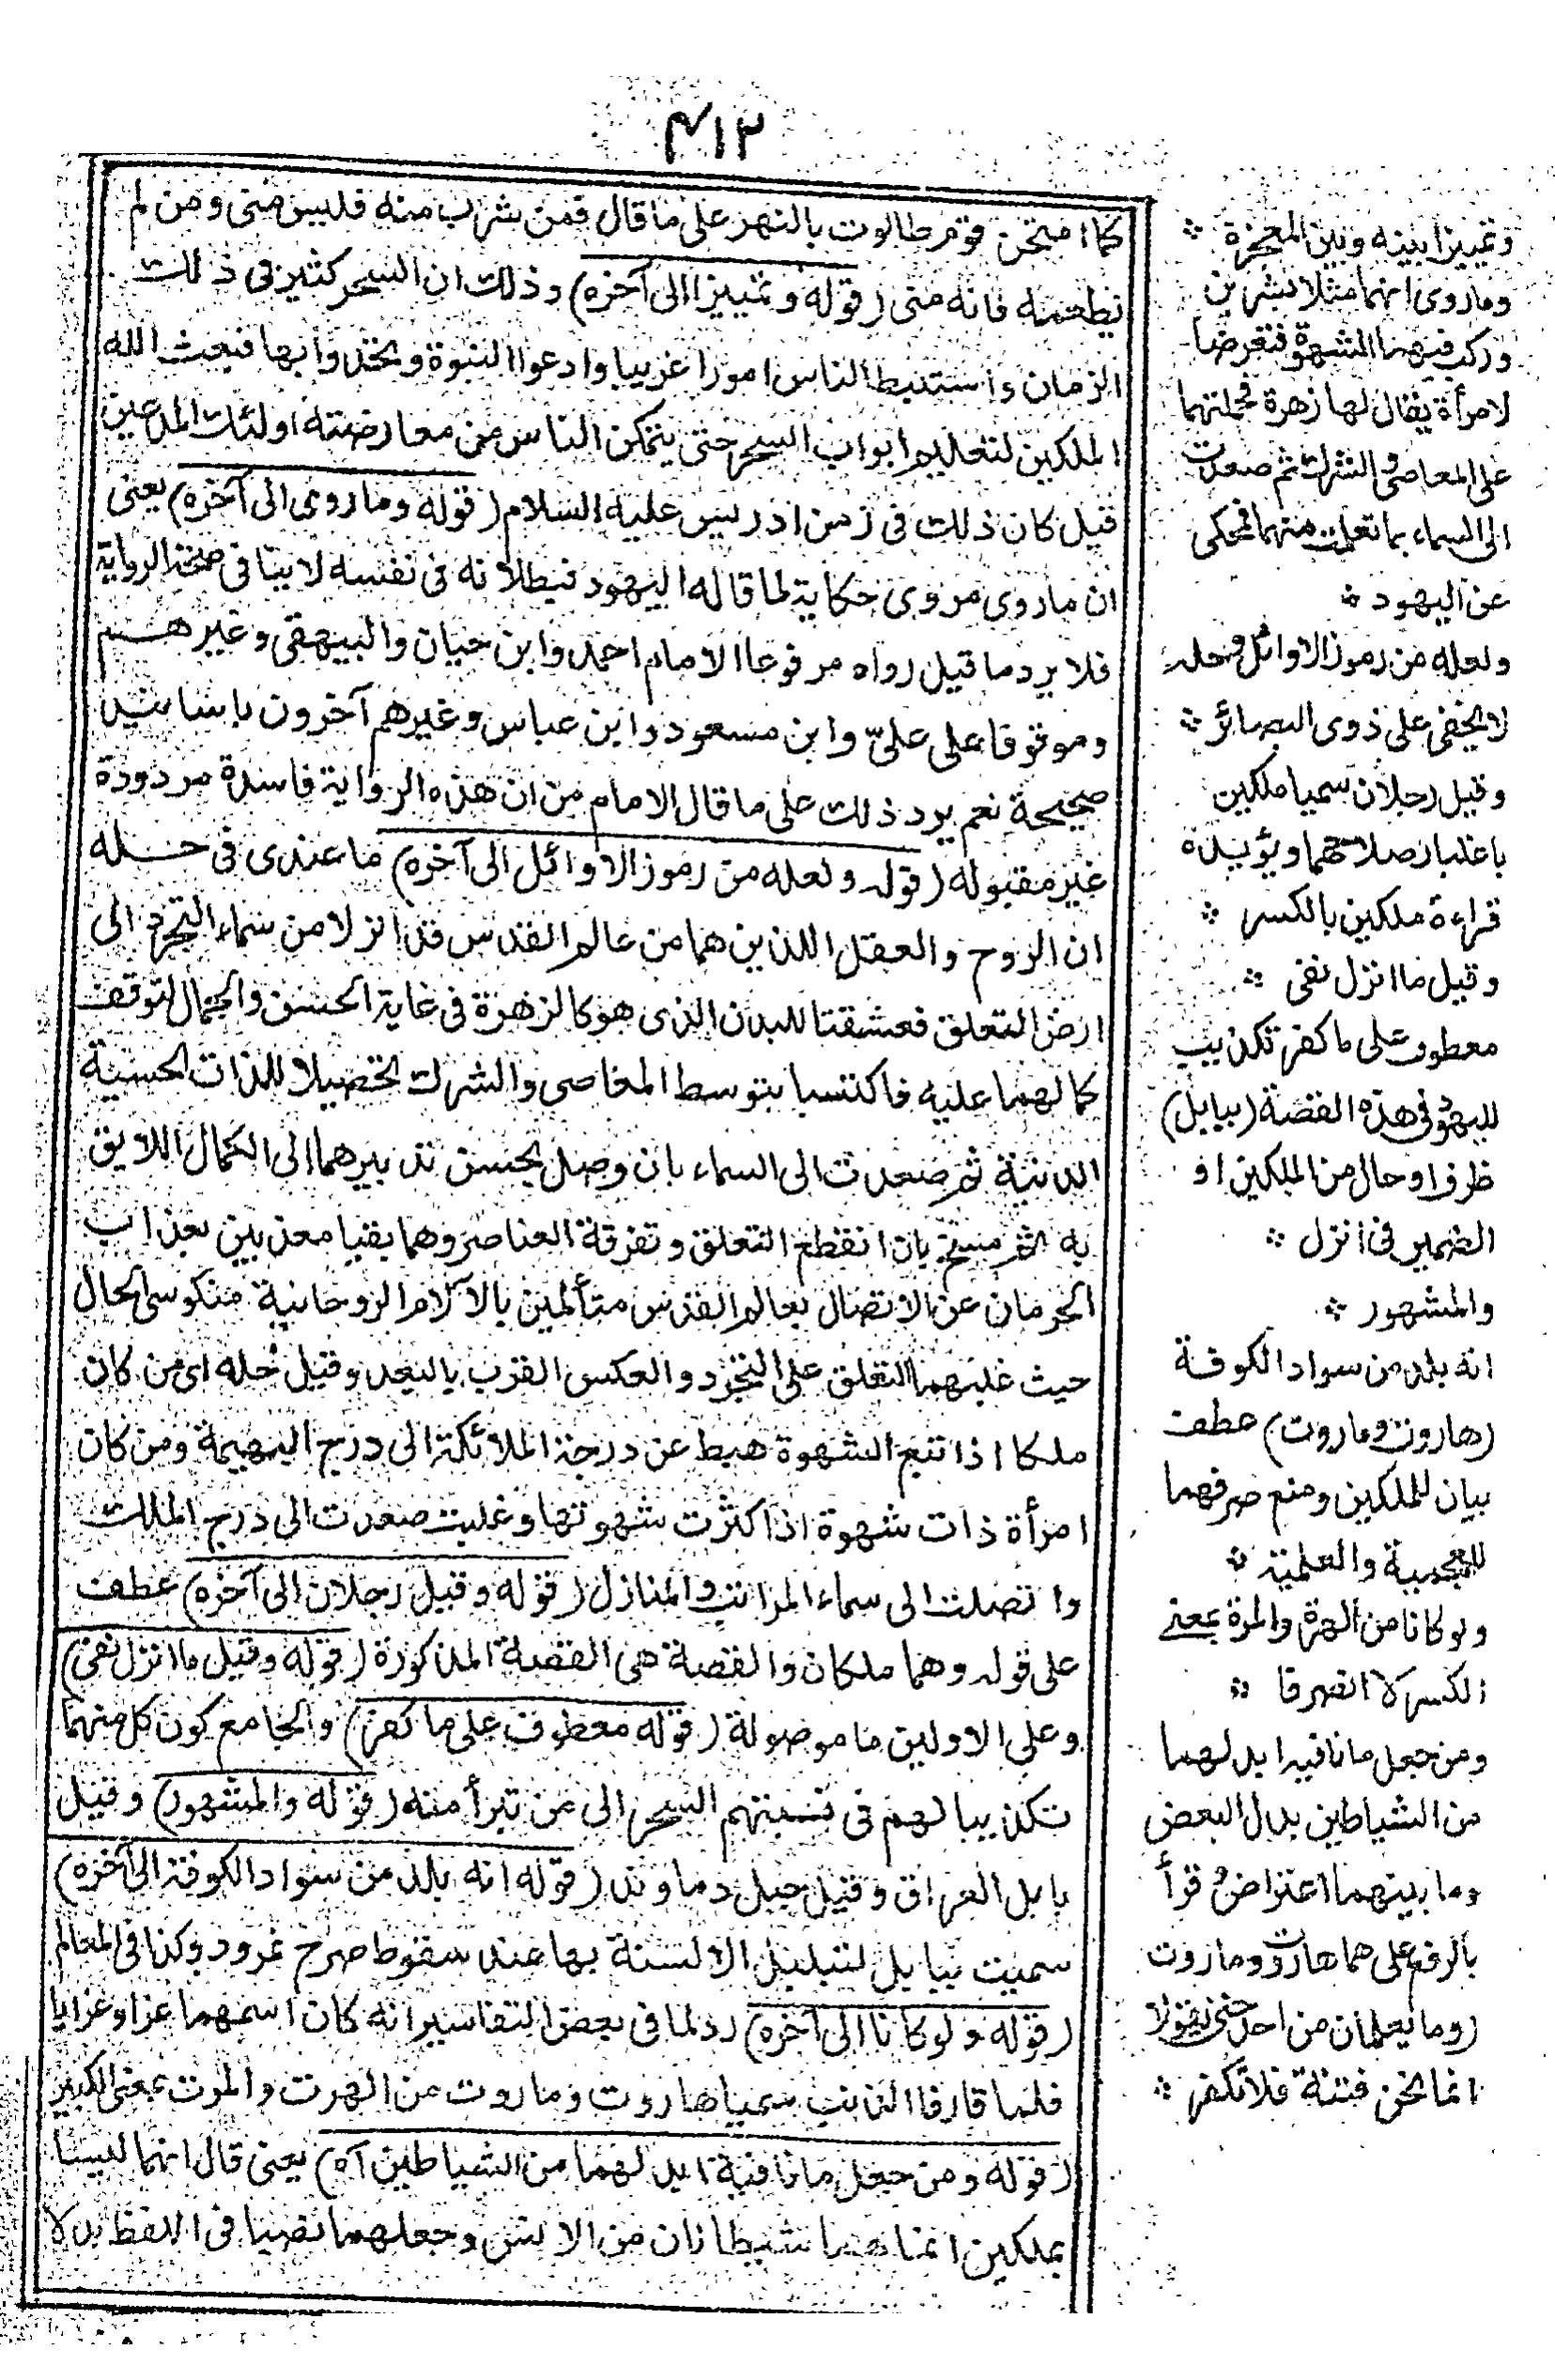 ٤١٢
كما امتحن قوم طالوت بالنهر على ما قال فمن شرب منه فليس منى ومن لم
يطعمه فانه منى (قوله وتمييزا الى آخره) وذلك ان السحر كثير فى ذلك
الزمان واستنبط الناس امورا غريبا وادعوا النبوة وتحدوا بها فبعث الله
الملكين لتعليم ابواب السحر حتى يتمكن الناس من معارضته اولئك المدعين
قيل كان ذلك فى زمن ادريس عليه السلام (قوله وما روى الى آخره) يعنى
ان ما روى مروى حكاية لما قاله اليهود فبطلانه فى نفسه لا ينافى صحة الرواية
فلا يرد ما قيل رواه مرفوعا الامام احمد وابن حبان والبيهقى وغيرهم
وموقوفا على علىّ وابن مسعود وابن عباس وغيرهم آخرون باسانيد
صحيحة نعم يرد ذلك على ما قال الامام من ان هذه الرواية فاسدة مردودة
غير مقبوله (قوله ولعله من رموز الاوائل الى آخره) ما عندى فى حله
ان الروح والعقل اللذين هما من عالم القدس قد انزلا من سماء التجرد الى
ارض التعلق فعشقتا للبدن الذى هو كالزهرة فى غاية الحسن والجمال لتوقف
كمالهما عليه فاكتسبا بتوسط المعاصى والشرك تحصيلا للذات الحسية
الدنية ثم صعدت الى السماء بان وصل بحسن تدبيرهما الى الكمال اللايق
به ثم مسخ بان انقطع التعلق وتفرقة العناصر وهما بقيا معذبين بعذاب
الحرمان عن الاتصال بعالم القدس متألمين بالآلام الروحانية منكوسى الحال
حيث غلبهما التعلق على التجرد والعكس القرب بالبعد وقيل حله اى من كان
ملكا اذا تبع الشهوة هبط عن درجة الملائكة الى درج البهيمة ومن كان
امرأة ذات شهوة اذا كثرت شهوتها وغلبت صعدت الى درج الملك
واتصلت الى سماء المراتب والمنازل (قوله وقيل رجلان الى آخره) عطف
على قوله وهما ملكان والقصة هى القصة المذكورة (قوله وقيل ما انزل نفى)
وعلى الاولين ما موصولة (قوله معطوف على ما كفر) والجامع كون كل منهما
تكذيبا لهم فى نسبتهم السحر الى من تبرأ منه (قوله والمشهور) وقيل
بابل العراق وقيل جبل دماوند (قوله انه بلد من سواد الكوفة الى آخره)
سميت ببابل لتبلبل الالسنة بها عند سقوط صرح نمرود وكذا فى المعالم
(قوله ولو كانا الى آخره) رد لما فى بعض التفاسير انه كان اسمهما عزا وعزايا
فلما قارفا الذنب سميا هاروت وماروت من الهرت والمرت بمعنى الكسر
(قوله ومن جعل ما نافية ابدلهما من الشياطين آه) يعنى قال انهما ليسا
بملكين انما هما شيطانان من الانس وجعلهما نصبا فى اللفظ بدلا
وتمييزا بينه وبين المعجزة
وما روى انهما مثلا بشرين
وركب فيهما الشهوة فتعرضا
لامرأة يقال لها زهرة فحملتهما
على المعاصى والشرك ثم صعدت
الى السماء بما تعلمت منهما فمحكى
عن اليهود
ولعله من رموز الاوائل وحله
لا يخفى على ذوى البصائر
وقيل رجلان سميا ملكين
باعتبار صلاحهما ويؤيده
قراءة ملكين بالكسر
وقيل ما انزل نفى
معطوف على ما كفر تكذيب
لليهود فى هذه القصة (ببابل)
ظرف او حال من الملكين او
الضمير فى انزل
والمشهور
انه بلد من سواد الكوفة
(هاروت وماروت) عطف
بيان للملكين ومنع صرفهما
للعجمية والعلمية
ولو كانا من الهرت والمرت بمعنى
الكسر لا انصرفا
ومن جعل ما نافية ابدلهما
من الشياطين بدل البعض
وما بينهما اعتراض وقرأ
بالرفع على هما هاروت وماروت
(وما يعلمان من احد حتى يقولا
انما نحن فتنة فلا تكفر